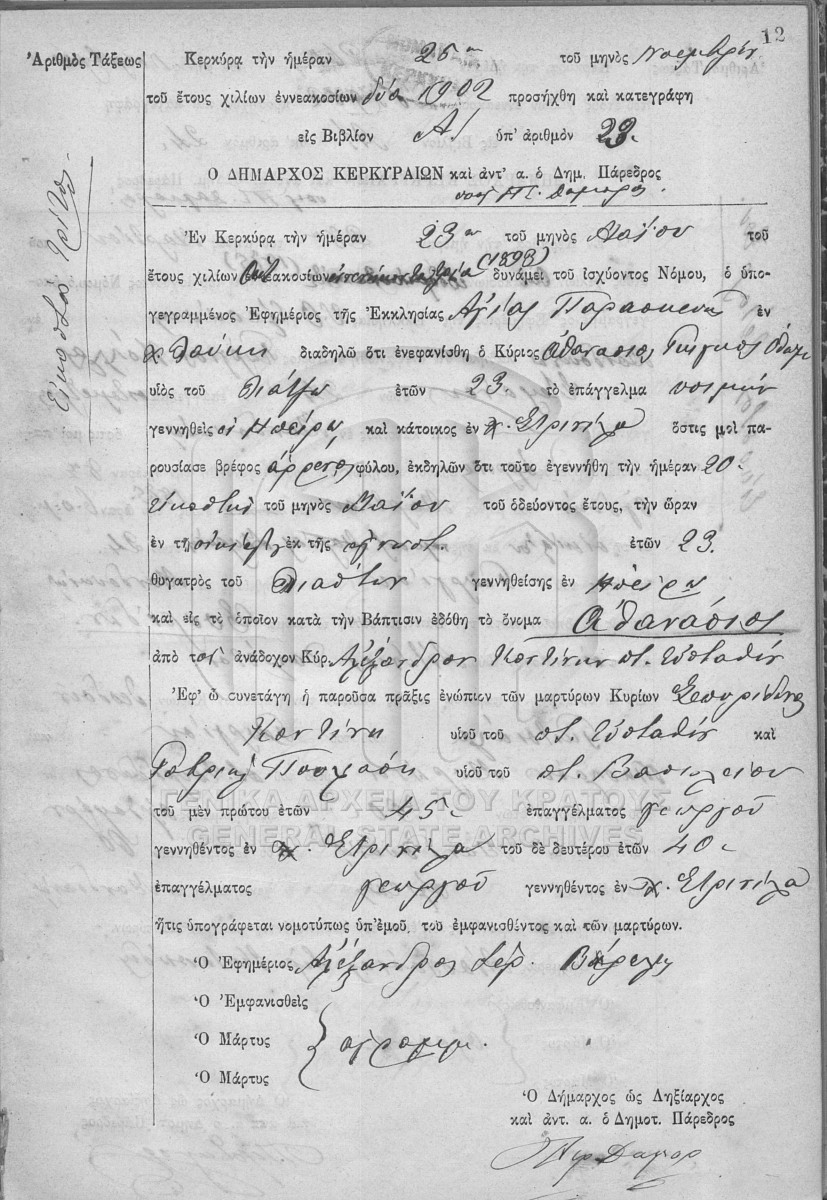 12
Ἀριθμὸς Τάξεως
Εἰκοστὸν τρίτον
Κερκύρᾳ τὴν ἡμέραν 25ην τοῦ μηνὸς Νοεμβρίου
τοῦ ἔτους χιλίων ἐννεακοσίων δύο 1902 προσήχθη καὶ κατεγράφη
εἰς Βιβλίον Α/ ὑπ' ἀριθμὸν 23.
Ο ΔΗΜΑΡΧΟΣ ΚΕΡΚΥΡΑΙΩΝ καὶ ἀντ' α. ὁ Δημ. Πάρεδρος
Ἐν Κερκύρᾳ τὴν ἡμέραν 23ην τοῦ μηνὸς Μαΐου τοῦ
ἔτους χιλίων (1893) δυνάμει τοῦ ἰσχύοντος Νόμου, ὁ ὑπο-
γεγραμμένος Ἐφημέριος τῆς Ἐκκλησίας Ἁγίας Παρασκευῆς ἐν
διαδηλῶ ὅτι ἐνεφανίσθη ὁ Κύριος Ἀθανάσιος
υἱὸς τοῦ ἐτῶν 23. τὸ ἐπάγγελμα ποιμὴν
γεννηθεὶς Ἠπείρῳ καὶ κάτοικος ἐν χ. Στρινίλα ὅστις μοὶ πα-
ρουσίασε βρέφος ἄρρενος φύλου, ἐκδηλῶν ὅτι τοῦτο ἐγεννήθη τὴν ἡμέραν 20
εἰκοστὴν τοῦ μηνὸς Μαΐου τοῦ ὁδεύοντος ἔτους, τὴν ὥραν
ἐν τῇ οἰκίᾳ ἐκ τῆς ἐτῶν 23.
θυγατρὸς τοῦ γεννηθείσης ἐν Ἠπείρῳ
καὶ εἰς τὸ ὁποῖον κατὰ τὴν Βάπτισιν ἐδόθη τὸ ὄνομα Ἀθανάσιος
ἀπὸ τὸν ἀνάδοχον Κύρ. Ἀλέξανδρον Κοντίνην π. Εὐσταθίου
Ἐφ' ᾧ συνετάγη ἡ παροῦσα πρᾶξις ἐνώπιον τῶν μαρτύρων Κυρίων Σπυρίδωνος
Κοντίνη υἱοῦ τοῦ π. Εὐσταθίου καὶ
υἱοῦ τοῦ π. Βασιλείου
τοῦ μὲν πρώτου ἐτῶν 45 ἐπαγγέλματος γεωργοῦ
γεννηθέντος ἐν χ. Στρινίλα τοῦ δὲ δευτέρου ἐτῶν 40
ἐπαγγέλματος γεωργοῦ γεννηθέντος ἐν χ. Στρινίλα
ἥτις ὑπογράφεται νομοτύπως ὑπ' ἐμοῦ, τοῦ ἐμφανισθέντος καὶ τῶν μαρτύρων.
Ὁ Ἐφημέριος Ἀλέξανδρος Ἱερ.
Ὁ Ἐμφανισθεὶς
Ὁ Μάρτυς ἀγράμμ.
Ὁ Μάρτυς
Ὁ Δήμαρχος ὡς Ληξίαρχος
καὶ ἀντ. α. ὁ Δημοτ. Πάρεδρος
ΓΕΝΙΚΑ ΑΡΧΕΙΑ ΤΟΥ ΚΡΑΤΟΥΣ
GENERAL STATE ARCHIVES